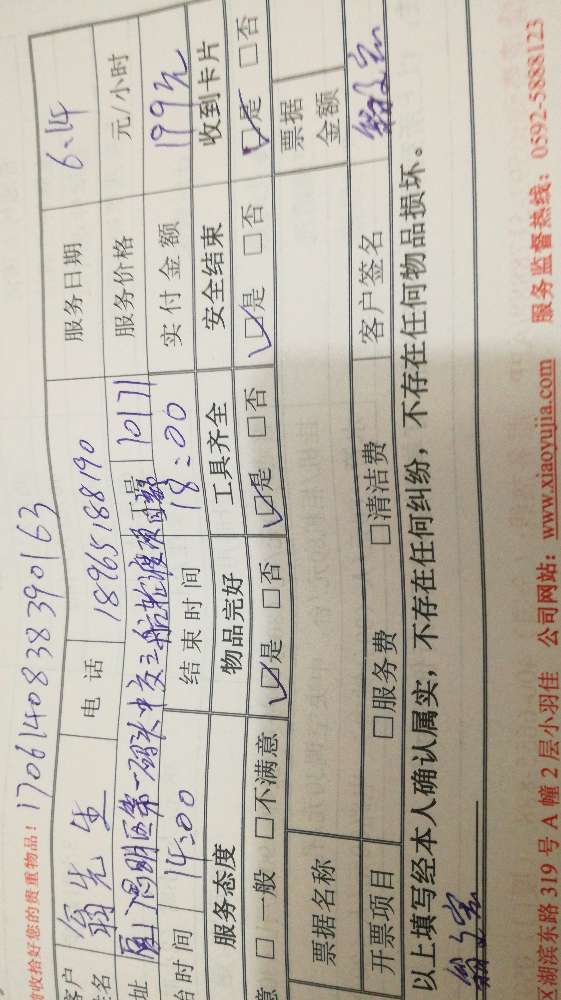 收拾好您的贵重物品! 1706140838390163
客户 翁先生 电话 18965188190 服务日期 6.14
址 厦门思明区第一码头中交三航轮渡项目部 工号 10171 服务价格 元/小时
始时间 14:00 结束时间 18:00 实付金额 199元
服务态度 物品完好 工具齐全 安全结束 收到卡片
意 □一般 □不满意 ☑是 □否 ☑是 □否 ☑是 □否 ☑是 □否
票据名称 票据金额
开票项目 □服务费 □清洁费 客户签名
以上填写经本人确认属实,不存在任何纠纷,不存在任何物品损坏。
区湖滨东路 319 号 A 幢 2 层小羽佳 公司网站:www.xiaoyujia.com 服务监督热线:0592-5888123